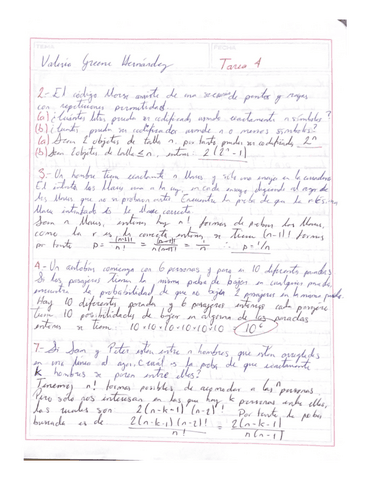 Valeria Greene Hernández Tarea 4
2.- El código Morse consta de una sucesión de puntos y rayas
con repeticiones permitidas
(a) ¿Cuántas letras pueden ser codificadas usando exactamente n símbolos?
(b) ¿Cuántas pueden ser codificadas usando n o menos símbolos?
(a) Sean 2 objetos de talla n, por tanto pueden ser codificados 2^n
(b) Sean 2 objetos de talla ≤ n, entonces 2(2^n - 1)
3.- Un hombre tiene exactamente n llaves y sólo una encaja en la cerradura
El intenta las llaves una a la vez, en cada
las llaves que no se probaron antes. Encuentre la proba de que la
llave intentada es la llave correcta.
Sean n llaves, entonces hay n! formas de probar las llaves,
como la r es la correcta entonces se tienen (n-1)! formas
por tanto p = (n-1)!/n! = (n-1)!/n(n-1)! = 1/n ∴ p = 1/n
4.- Un autobús comienza con 6 personas y para en 10 diferentes paradas
Si los pasajeros tienen la misma proba de bajar en cualquier parada
encuentre la probabilidad de que no bajen 2 pasajeros en la misma parada.
Hay 10 diferentes paradas y 6 pasajeros entonces cada pasajero
tiene 10 posibilidades de bajar en alguna de las paradas
entonces se tienen 10·10·10·10·10·10 = 10^6
7.- Si Sam y Peter están entre n hombres, que están arreglados
en una línea al azar. ¿Cuál es la proba de que exactamente
k hombres se paren entre ellos?
Tenemos n! formas posibles de acomodar a las n personas
Pero sólo nos interesan en las que hay k personas entre ellos,
las cuales son 2(n-k-1)(n-2)! Por tanto la proba
buscada es de 2(n-k-1)(n-2)!/n! = 2(n-k-1)/n(n-1)